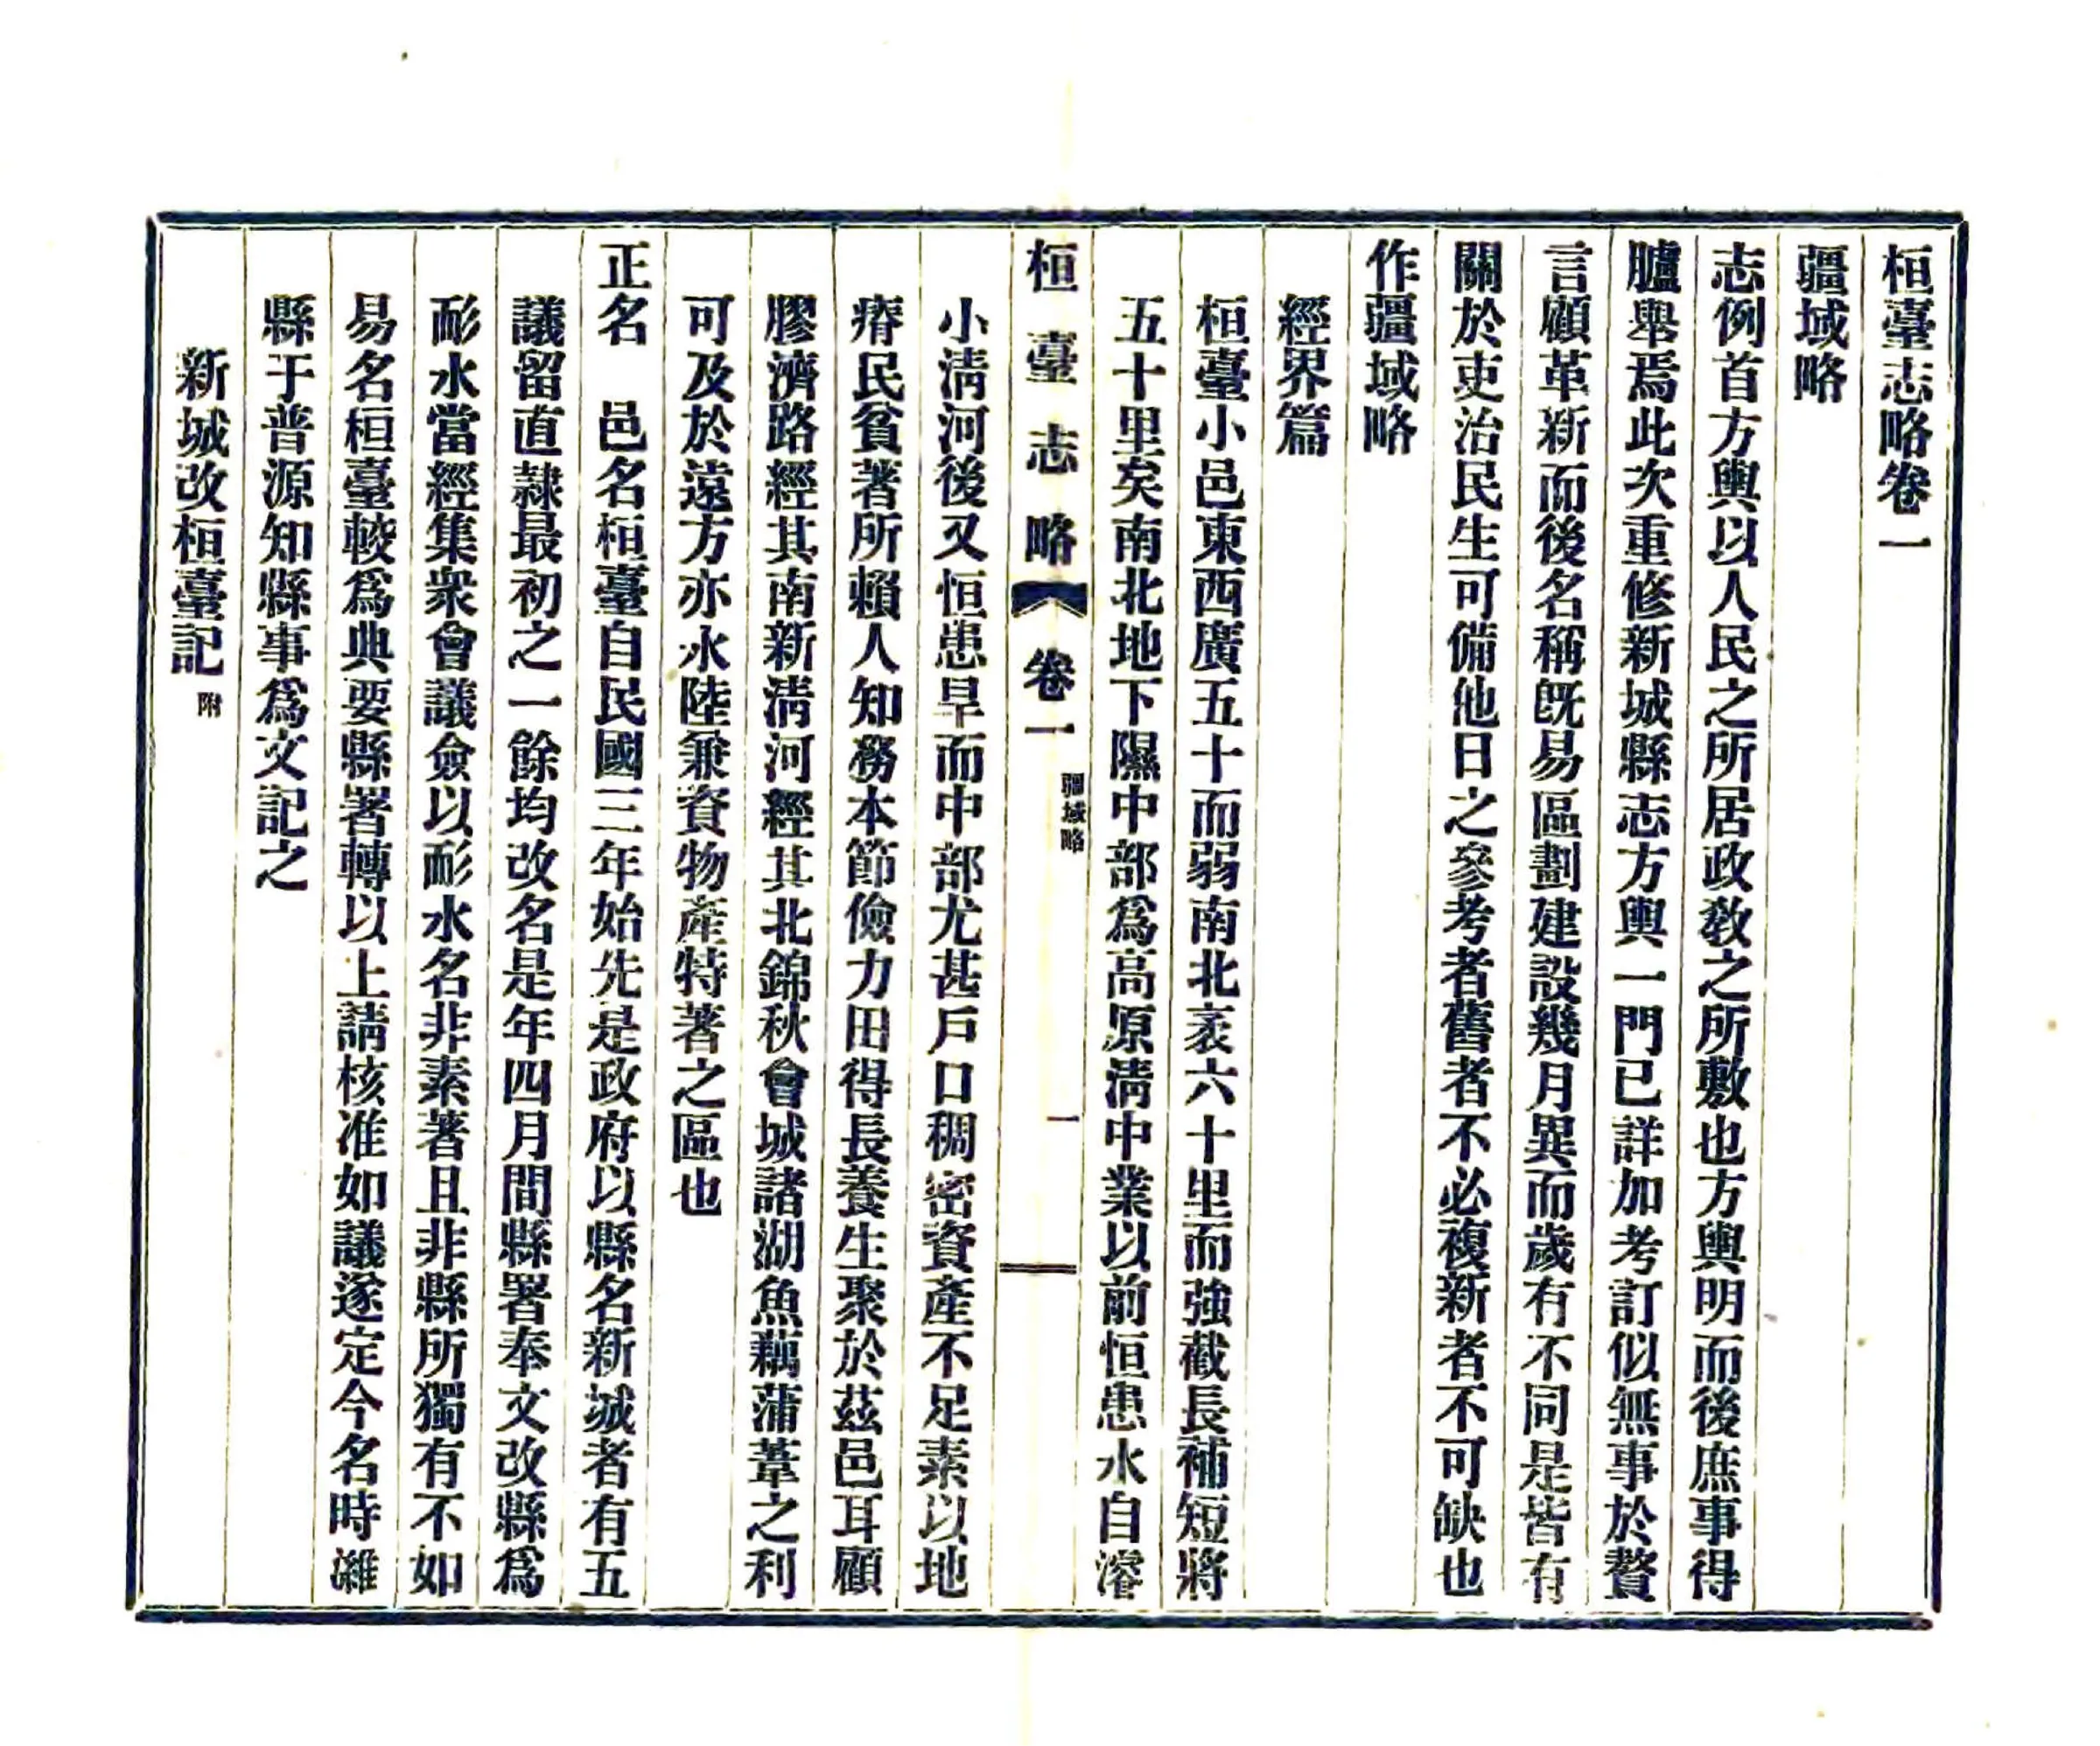 桓臺志略卷一
疆域略
志例首方輿以人民之所居政敎之所敷也方輿明而後庶事得
臚舉焉此次重修新城縣志方輿一門已詳加考訂似無事於贅
言顧革新而後名稱旣易區劃建設幾月異而歲有不同是皆有
關於吏治民生可備他日之參考者舊者不必複新者不可缺也
作疆域略
經界篇
桓臺小邑東西廣五十而弱南北袤六十里而強截長補短將
五十里矣南北地下隰中部爲高原淸中業以前恒患水自濬
桓臺志略 卷一 疆域略 一
小淸河後又恒患旱而中部尤甚戶口稠密資產不足素以地
瘠民貧著所賴人知務本節儉力田得長養生聚於茲邑耳顧
膠濟路經其南新淸河經其北錦秋會城諸湖魚藕蒲葦之利
可及於遠方亦水陸兼資物產特著之區也
正名 邑名桓臺自民國三年始先是政府以縣名新城者有五
議留直隷最初之一餘均改名是年四月間縣署奉文改縣爲
耏水當經集衆會議僉以耏水名非素著且非縣所獨有不如
易名桓臺較爲典要縣署轉以上請核准如議遂定今名時濰
縣于普源知縣事爲文記之
新城改桓臺記 附